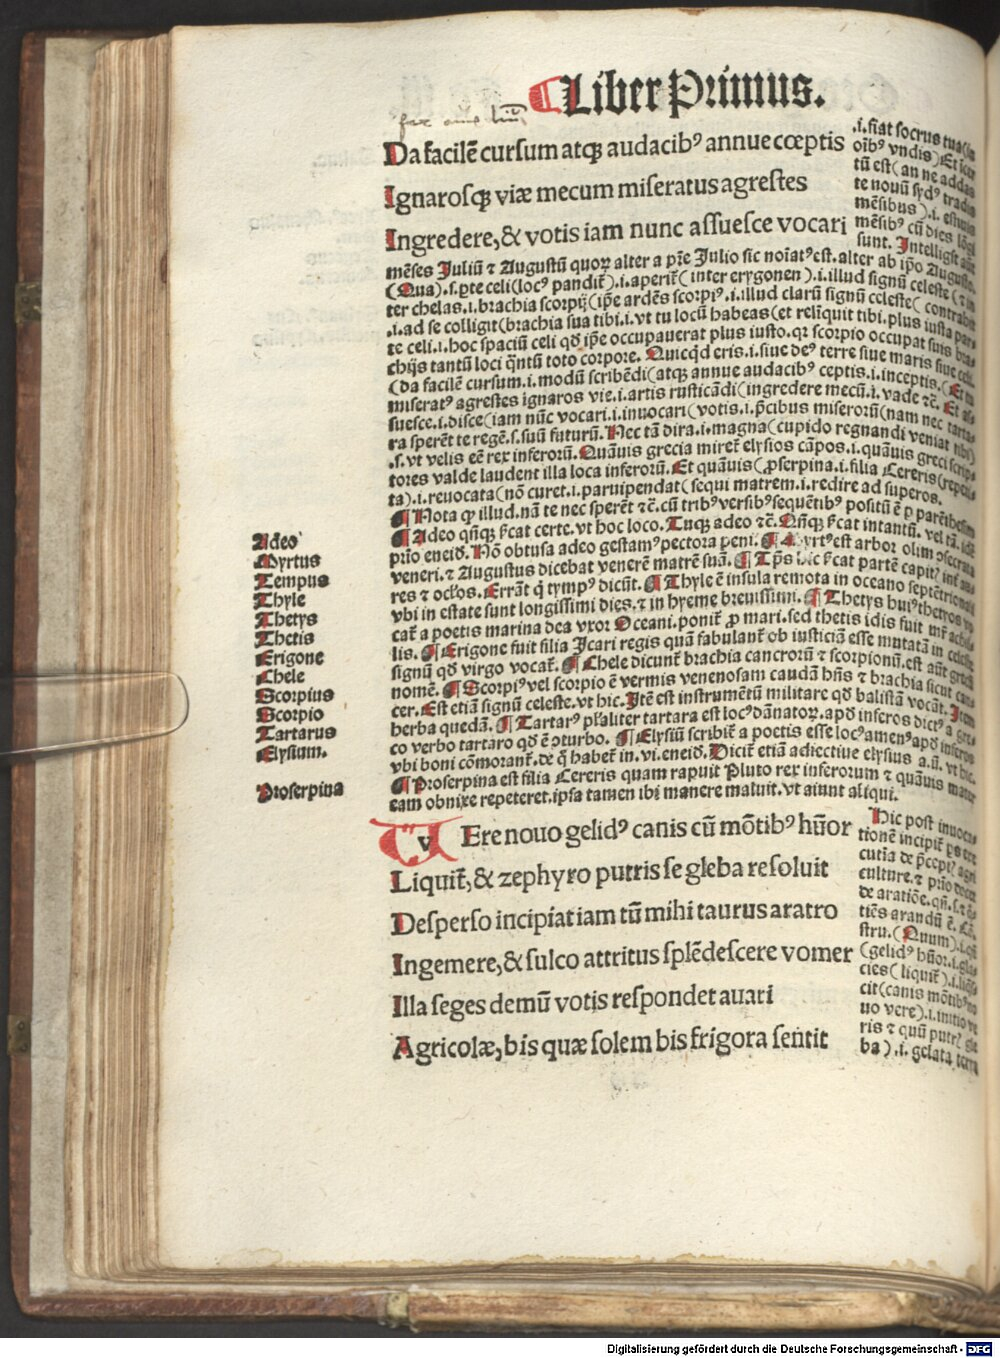 ¶Liber Primus.
Da facilē cursum atqꝫ audacibꝰ annue cœptis
Ignarosqꝫ viæ mecum miseratus agrestes
Ingredere, & votis iam nunc assuesce vocari
.i. fiat socrus tua(in
oībꝰ vndis) Et
tū est(an ne addas
te nouū sydꝰ tradis
mēsibus).i. estiuis
mēsibꝰ cū dies lōgi
sunt. Intelligit aūt
mēses Juliū ⁊ Augustū quoꝝ alter a pr̄e Julio sic noīatꝰ est. alter ab ip̄o Augusto.
(Qua).s.ꝑte celi(locꝰ pandit̄).i.aperit̄(inter erygonen).i.illud signū celeste(⁊ in
ter chelas.i.brachia scorpij(ip̄e ardēs scorpiꝰ.i.illud clarū signū celeste(contrahit
.i.ad se colligit(brachia sua tibi.i.vt tu locū habeas(et relīquit tibi.plus iusta par
te celi.i.hoc spaciū celi qd̄ ip̄e occupauerat plus iusto.qꝛ scorpio occupat suis bra-
chijs tantū loci q̄ntū toto corpore. Quicq̄d eris.i.siue deꝰ terre siue maris siue celi.
(da facilē cursum.i.modū scribēdi(atqꝫ annue audacibꝰ ceptis.i.inceptis.(Et tu
miseratꝰ agrestes ignaros vie.i.artis rusticādi(ingredere mecū.i.vade ⁊c̄. Et as-
suesce.i.disce(iam nūc vocari.i.inuocari(votis.i.p̄cibus miserorū(nam nec tarta-
ra sperēt te regē.s.suū futurū. Nec tā dira.i.magna(cupido regnandi veniat tibi)
.s.vt velis eē rex inferorū. Quāuis grecia miret̄ elysios cāpos.i.quāuis greci scrip-
tores valde laudent illa loca inferorū. Et quāuis(ꝓserpina.i.filia Cereris(repeti-
ta).i.reuocata(nō curet.i.paruipendat(sequi matrem.i.redire ad superos.
¶Nota ꝙ illud.nā te nec sperēt ⁊c̄.cū tribꝰ versibꝰ sequētibꝰ positū ē ꝑ parēthesim
¶Adeo qn̄qꝫ s̄cat certe.vt hoc loco. Tuqꝫ adeo ⁊c̄. Qn̄qꝫ s̄cat intantū. vel tā.
prīo eneid̄. Nō obtusa adeo gestamꝰ pectora peni. ¶Myrtꝰ est arbor olim ꝯsecrata
veneri.⁊ Augustus dicebat venerē matrē suā. ¶Tp̄s hic s̄cat partē capitꝭ int̄ au-
res ⁊ ocl̄os. Errāt q̄ tympꝰ dicūt. ¶Thyle ē insula remota in oceano septētrionali
vbi in estate sunt longissimi dies.⁊ in hyeme breuissimi. ¶Thetys huiꝰ thetyos vo
cat̄ a poetis marina dea vxor Oceani.ponit̄ ꝓ mari.sed thetis idis fuit mr̄ achil-
lis. ¶Erigone fuit filia Icari regis quā fabulant̄ ob iusticiā esse mutatā in celeste
signū qd̄ virgo vocat̄. ¶Chele dicunt̄ brachia cancrorū ⁊ scorpionū.est aūt grecū
nomē. ¶Scorpiꝰ vel scorpio ē vermis venenosam caudā hn̄s ⁊ brachia sicut can-
cer. Est etiā signū celeste.vt hic. Itē est instrumētū militare qd̄ balistā vocāt. Item
herba quedā. ¶Tartarꝰ pl̄aliter tartara est locꝰ dānatoꝝ.apd̄ inferos dictꝰ a gre-
co verbo tartaro qd̄ ē ꝯturbo. ¶Elysiū scribit̄ a poetis esse locꝰ amenꝰ apd̄ inferos
vbi boni cōmorant̄.de q̄ habet̄ in.vi.eneid̄. Dicit̄ etiā adiectiue elysius a.ū. vt hic.
¶Proserpina est filia Cereris quam rapuit Pluto rex inferorum ⁊ quāuis mater
eam obnixe repeteret.ipsa tamen ibi manere maluit.vt aiunt aliqui.
Adeo
Myrtus
Tempus
Thyle
Thetys
Thetis
Erigone
Chele
Scorpius
Scorpio
Tartarus
Elysium.
Proserpina
Vere nouo gelidꝰ canis cū mōtibꝰ hūor
Liquit̄, & zephyro putris se gleba resoluit
Depresso incipiat iam tū mihi taurus aratro
Ingemere, & sulco attritus splēdescere vomer
Illa seges demū votis respondet auari
Agricolæ, bis quæ solem bis frigora sentit
Hic post inuoca-
tionē incipit
cutiā de p̄ceptꝭ agri
culture.⁊ prīo docet
de aratiōe.qn̄.s.
tiēs arandū ē.
stru.(Quum).i.qn̄
(gelidꝰ hūor.i.gla-
cies(liquit̄).i.
cit(canis mōtibꝰ
uo vere).i.initio ve
ris ⁊ quū putrꝭ gle
ba).i.gelata terra
Digitalisierung gefördert durch die Deutsche Forschungsgemeinschaft - DFG